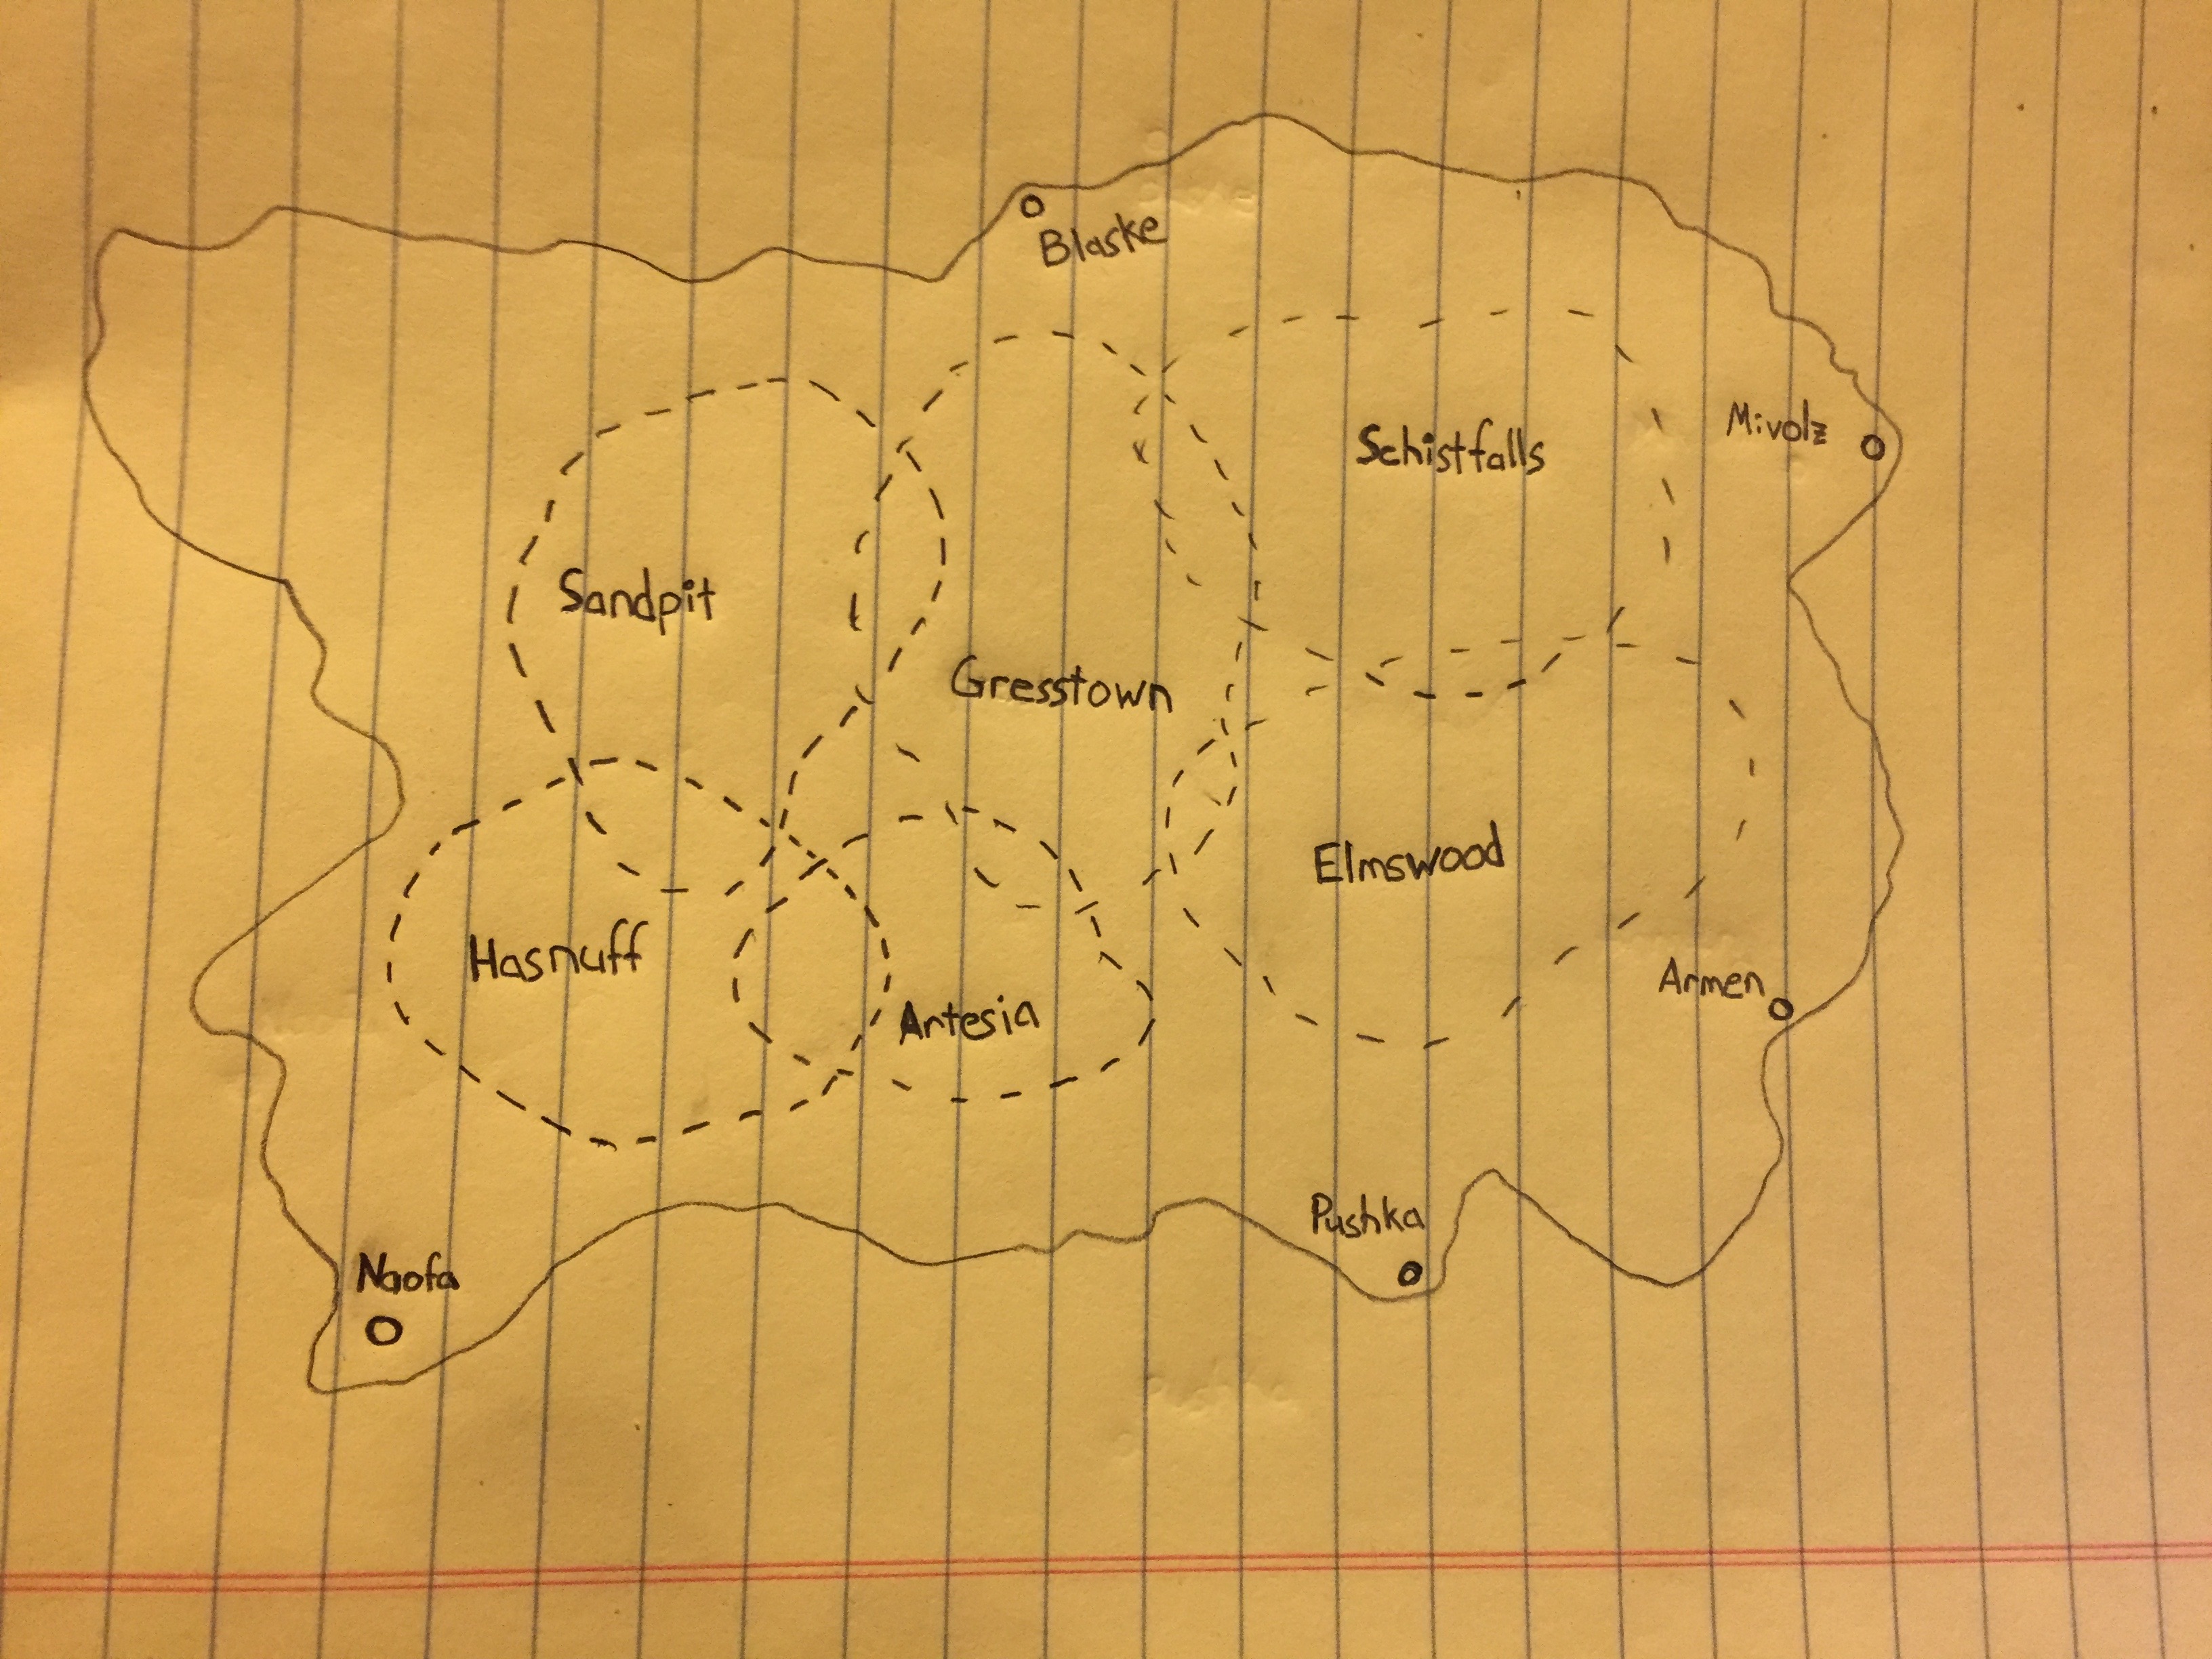 Blaske
Mivolz
Schistfalls
Sandpit
Gresstown
Elmswood
Hasnuff
Artesia
Armen
Pushka
Naofa